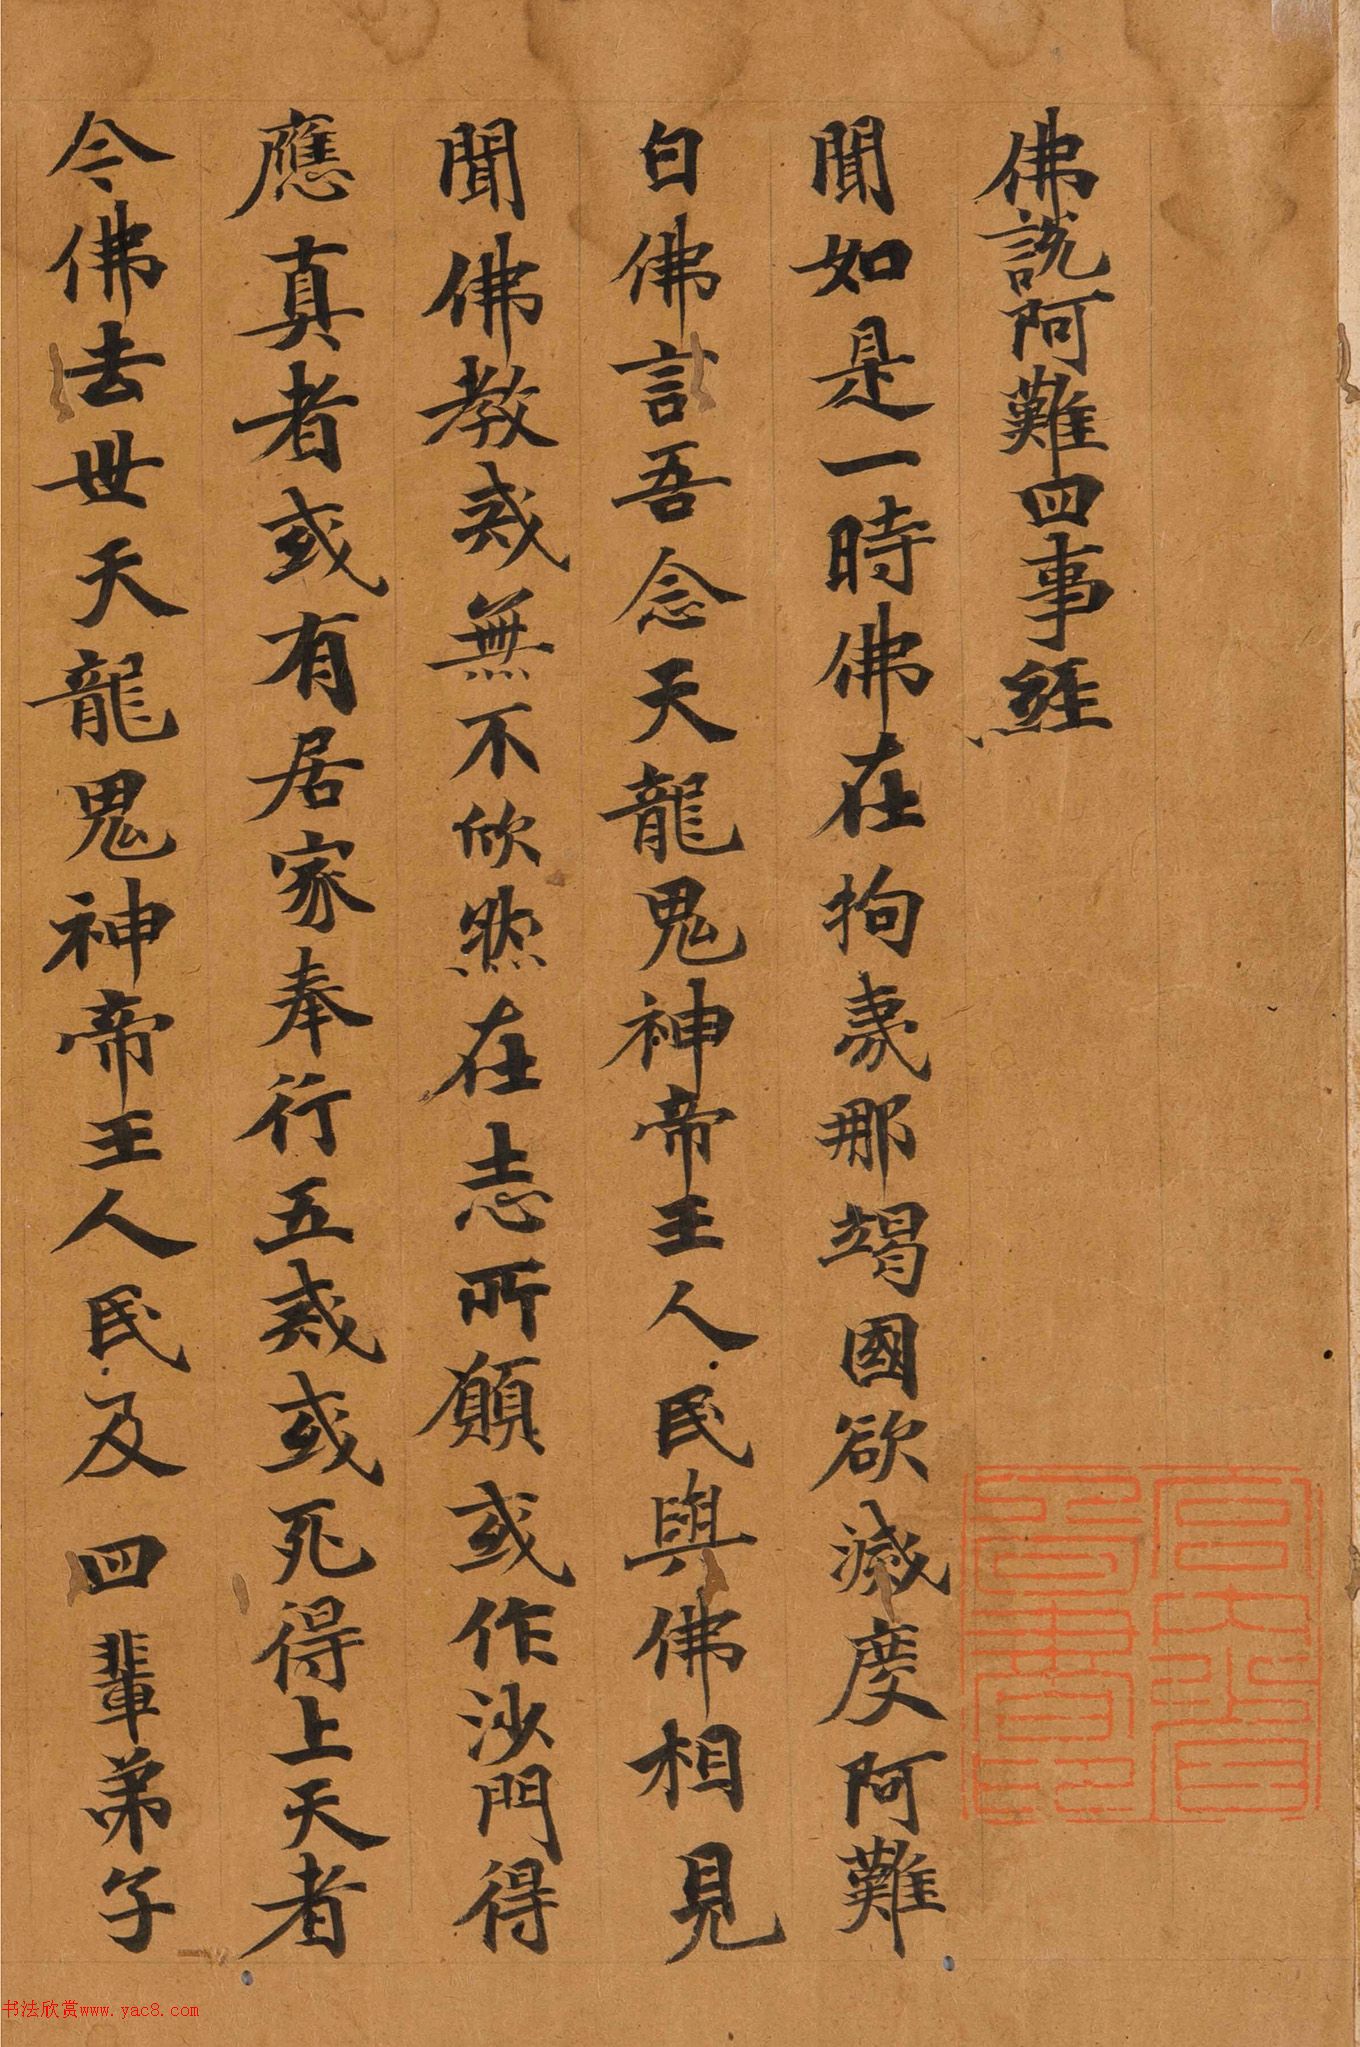 佛說阿難四事經
聞如是一時佛在拘夷那竭國欲滅度阿難
白佛言吾念天龍鬼神帝王人民與佛相見
聞佛教戒無不欣然在志所願或作沙門得
應真者或有居家奉行五戒或死得上天者
今佛去世天龍鬼神帝王人民及四輩弟子
书法欣赏www.yac8.com